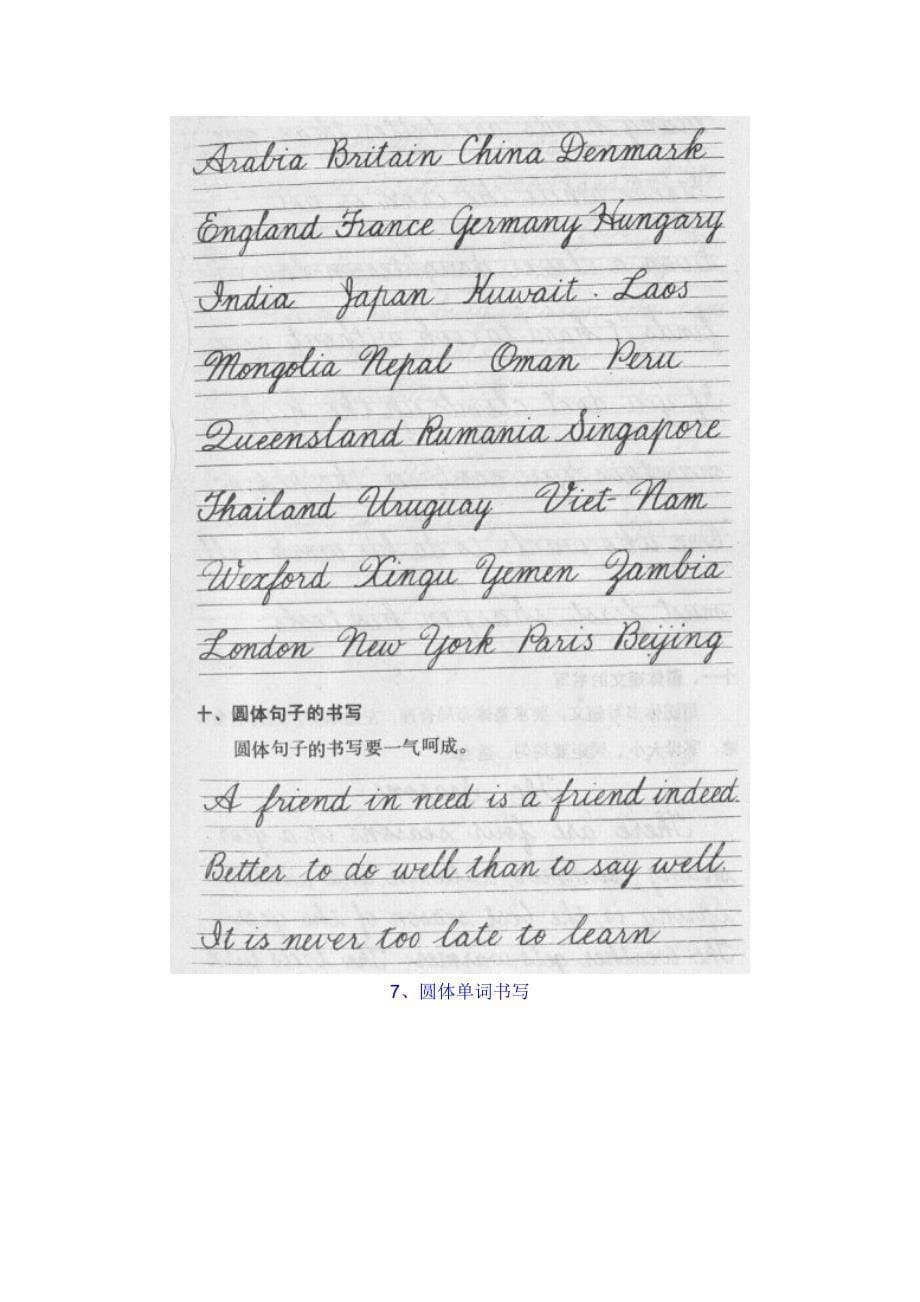 Arabia Britain China Denmark
England France Germany Hungary
India Japan Kuwait. Laos
Mongolia Nepal Oman Peru
Queensland Rumania Singapore
Thailand Uruguay Viet-Nam
Wexford Xingu Yemen Zambia
London New York Paris Beijing
十、圆体句子的书写
圆体句子的书写要一气呵成。
A friend in need is a friend indeed.
Better to do well than to say well.
It is never too late to learn
7、圆体单词书写